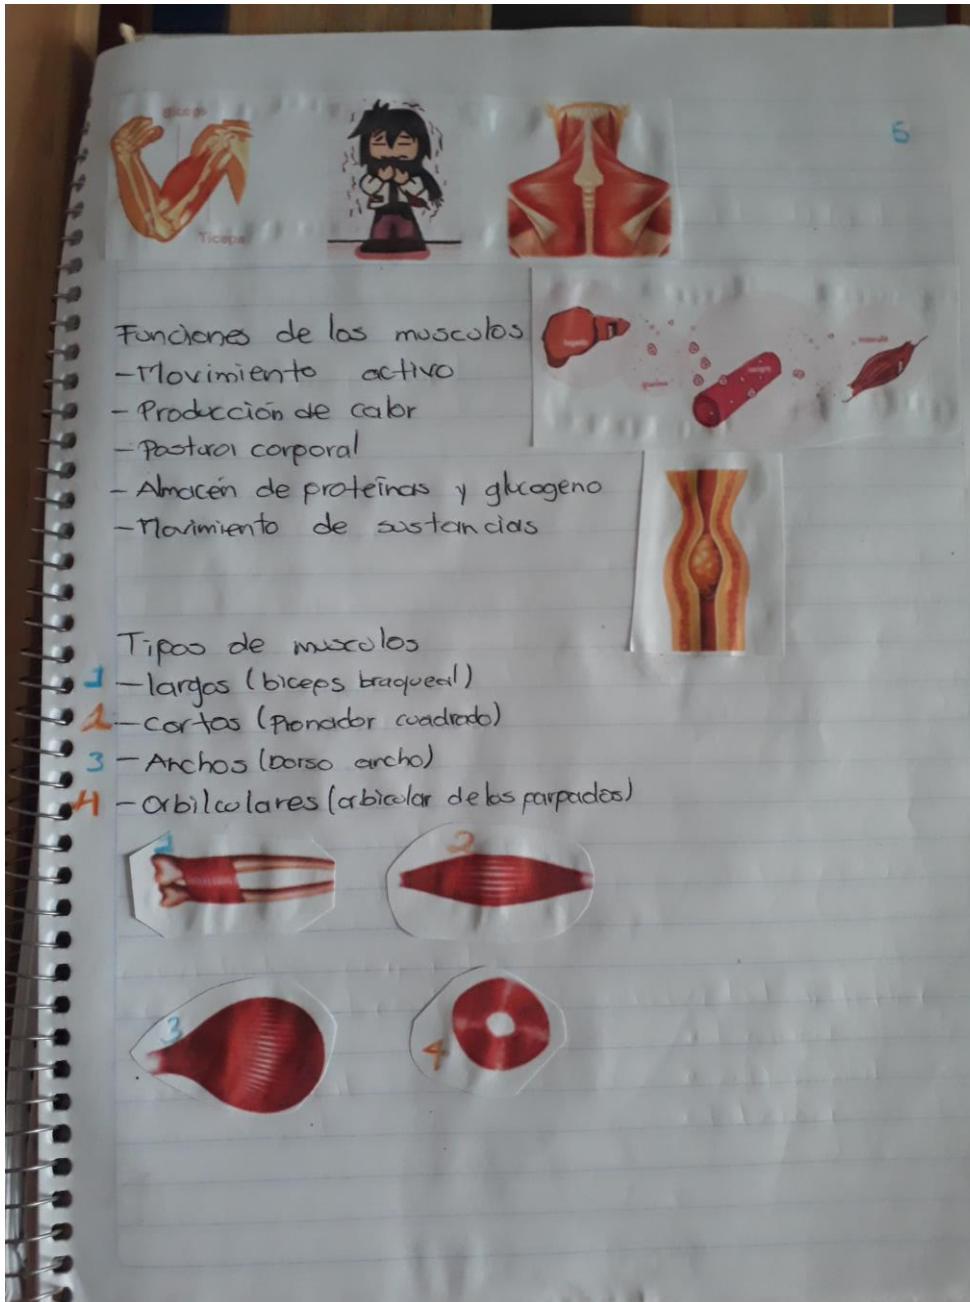 Biceps
Ticeps
5
Funciones de los musculos
-Movimiento activo
- Producción de calor
- Postura corporal
- Almacén de proteínas y glucogeno
- Movimiento de sustancias
hígado
glucosa
sangre
músculo
Tipos de musculos
1 - largos (biceps braqueal)
2 - cortos (Pronador cuadrado)
3 - Anchos (Dorso ancho)
4 - Orbilculares (orbicular de los parpados)
1
2
3
4